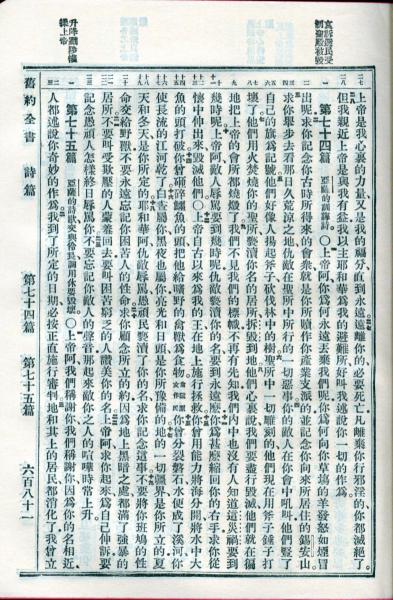 哀訴選民受
制聖殿被毀
上帝是我心裏的力量又是我的福分直到永遠遠離你的必要死亡凡離棄你行邪淫的你都滅絕了
但我親近上帝是與我有益我以主耶和華為我的避難所好叫我述說你一切的作為
第七十四篇 亞薩的訓誨詩 〇上帝阿你為何永遠丟棄我們呢你為何向你草場的羊發怒如煙冒
出呢求你記念你古時所得來的會衆就是你所贖作你產業支派的並記念你向來所居住的錫安山
求你舉步去看那日久荒涼之地仇敵在聖所中所行的一切惡事你的敵人在你會中吼叫他們豎了
自己的旗為記號他們好像人揚起斧子砍伐林中的樹聖所中一切雕刻的他們現在用斧子錘子打
壞了他們用火焚燒你的聖所褻瀆你名的居所拆毀到地他們心裏說我們要盡行毀滅他們就在徧
地把上帝的會所都燒燬了我們不見我們的標幟不再有先知我們內中也沒有人知道這災禍要到
幾時呢上帝阿敵人辱罵要到幾時呢仇敵褻瀆你的名要到永遠麼你為甚麼縮回你的右手求你從
懷中伸出來毀滅他們〇上帝自古以來為我的王在地上施行拯救你曾用能力將海分開將水中大
魚的頭打破你曾砸碎鱷魚的頭把他給曠野的禽獸為食物你曾分裂磐石水便成了溪河你
使長流的江河乾了白晝屬你黑夜也屬你亮光和日頭是你所預備的地的一切疆界是你所立的夏
天和冬天是你所定的耶和華阿仇敵辱罵愚頑民褻瀆了你的名求你記念這事不要將你班鳩的性
命交給野獸不要永遠忘記你困苦人的性命求你顧念所立的約因為地上黑暗之處都滿了強暴的
居所不要叫受欺壓的人蒙羞回去要叫困苦窮乏的人讚美你的名上帝阿求你起來為自己伸訴要
記念愚頑人怎樣終日辱罵你不要忘記你敵人的聲音那起來敵你之人的喧嘩時常上升
第七十五篇 亞薩的詩歌交與伶長調用休要毀壞 〇上帝阿我們稱謝你我們稱謝你因為你的名相近
人都述說你奇妙的作為我到了所定的日期必按正直施行審判地和其上的居民都消化了我曾立
舊約全書 詩篇 第七十四篇 第七十五篇 六百八十一